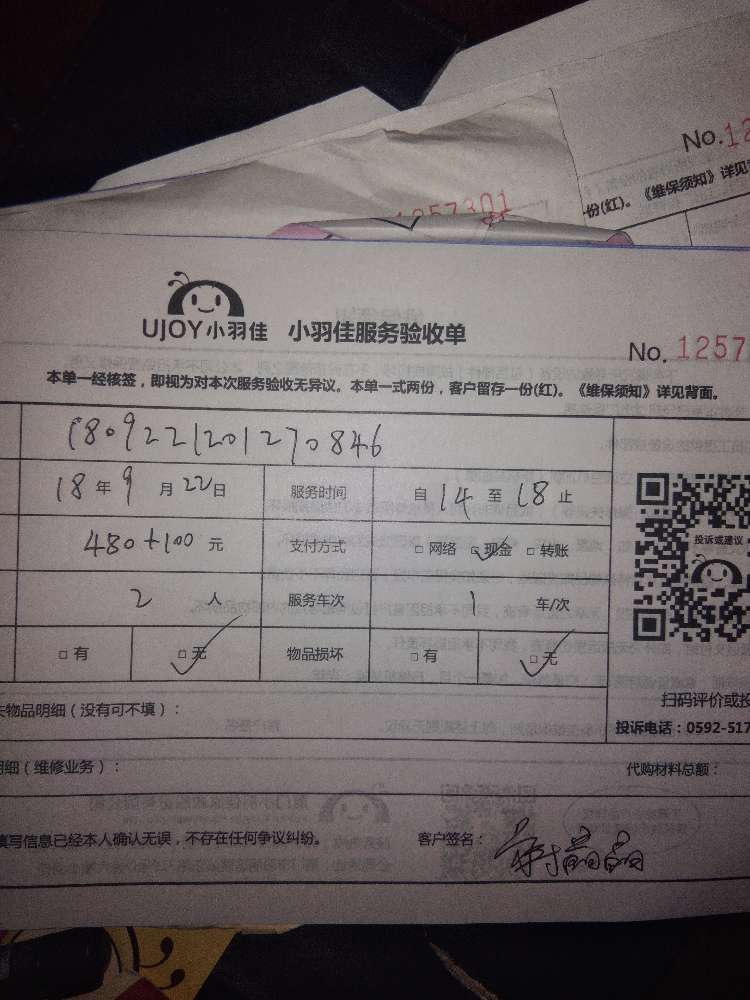 No.12
份(红)。《维保须知》详见
1257301
UJOY小羽佳 小羽佳服务验收单
No. 1257
本单一经核签，即视为对本次服务验收无异议。本单一式两份，客户留存一份(红)。《维保须知》详见背面。
1809221201270846
18年9月22日 服务时间 自14至18止
480+100元 支付方式 □网络 □现金 □转账
投诉或建议
2人 服务车次 1车/次
□有 □无 物品损坏 □有 □无
物品明细（没有可不填）：
扫码评价或投
投诉电话：0592-517
细（维修业务）：
代购材料总额：
填写信息已经本人确认无误，不存在任何争议纠纷。 客户签名：